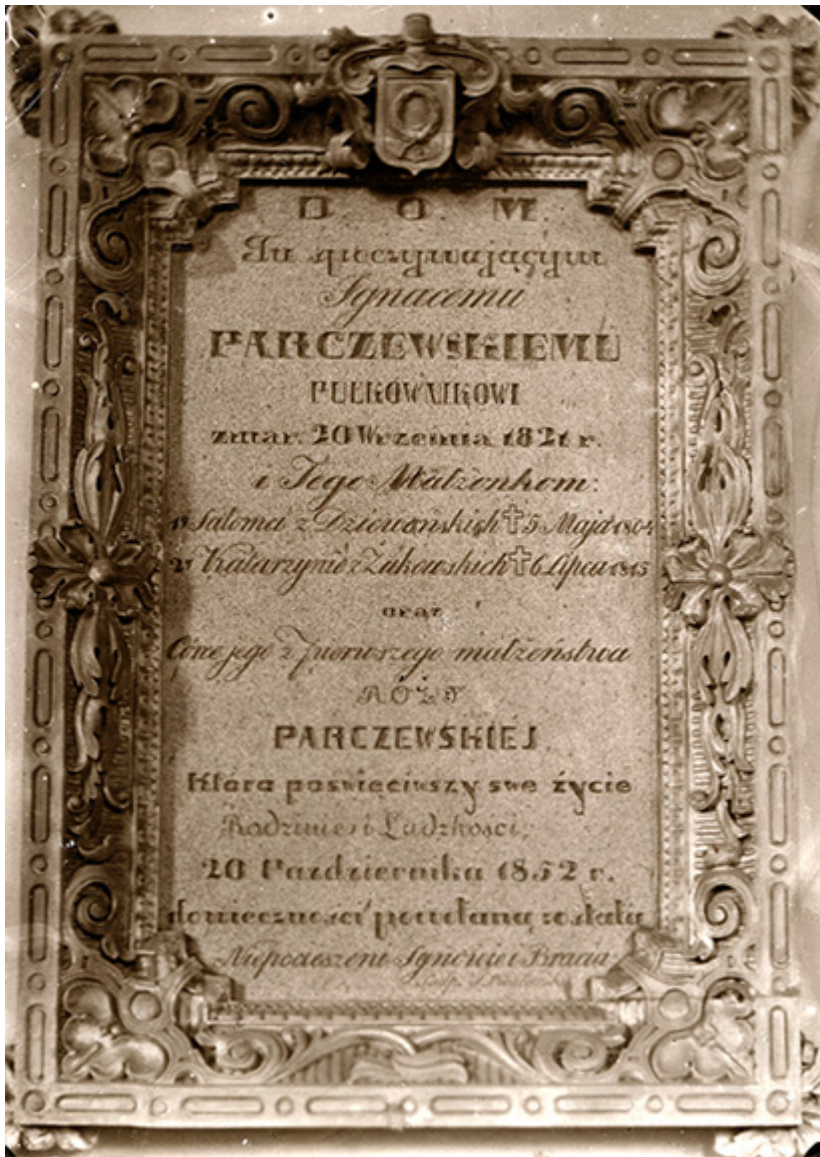 D. O. M.
Tu spoczywającym
Ignacemu
PARCZEWSKIEMU
PUŁKOWNIKOWI
zmar. 20 Września 1821 r.
i Jego Małżonkom:
1º Salomei z Dziewońskich † 5 Maja 1804
2º Katarzynie z Żukowskich † 6 Lipca 1815
oraz
Córce jego z pierwszego małżeństwa
RÓŻY
PARCZEWSKIEJ
Która poświęciwszy swe życie
Rodzinie i Ludzkości,
20 Października 1852 r.
do wieczności powołaną została
Niepocieszeni Synowie i Bracia